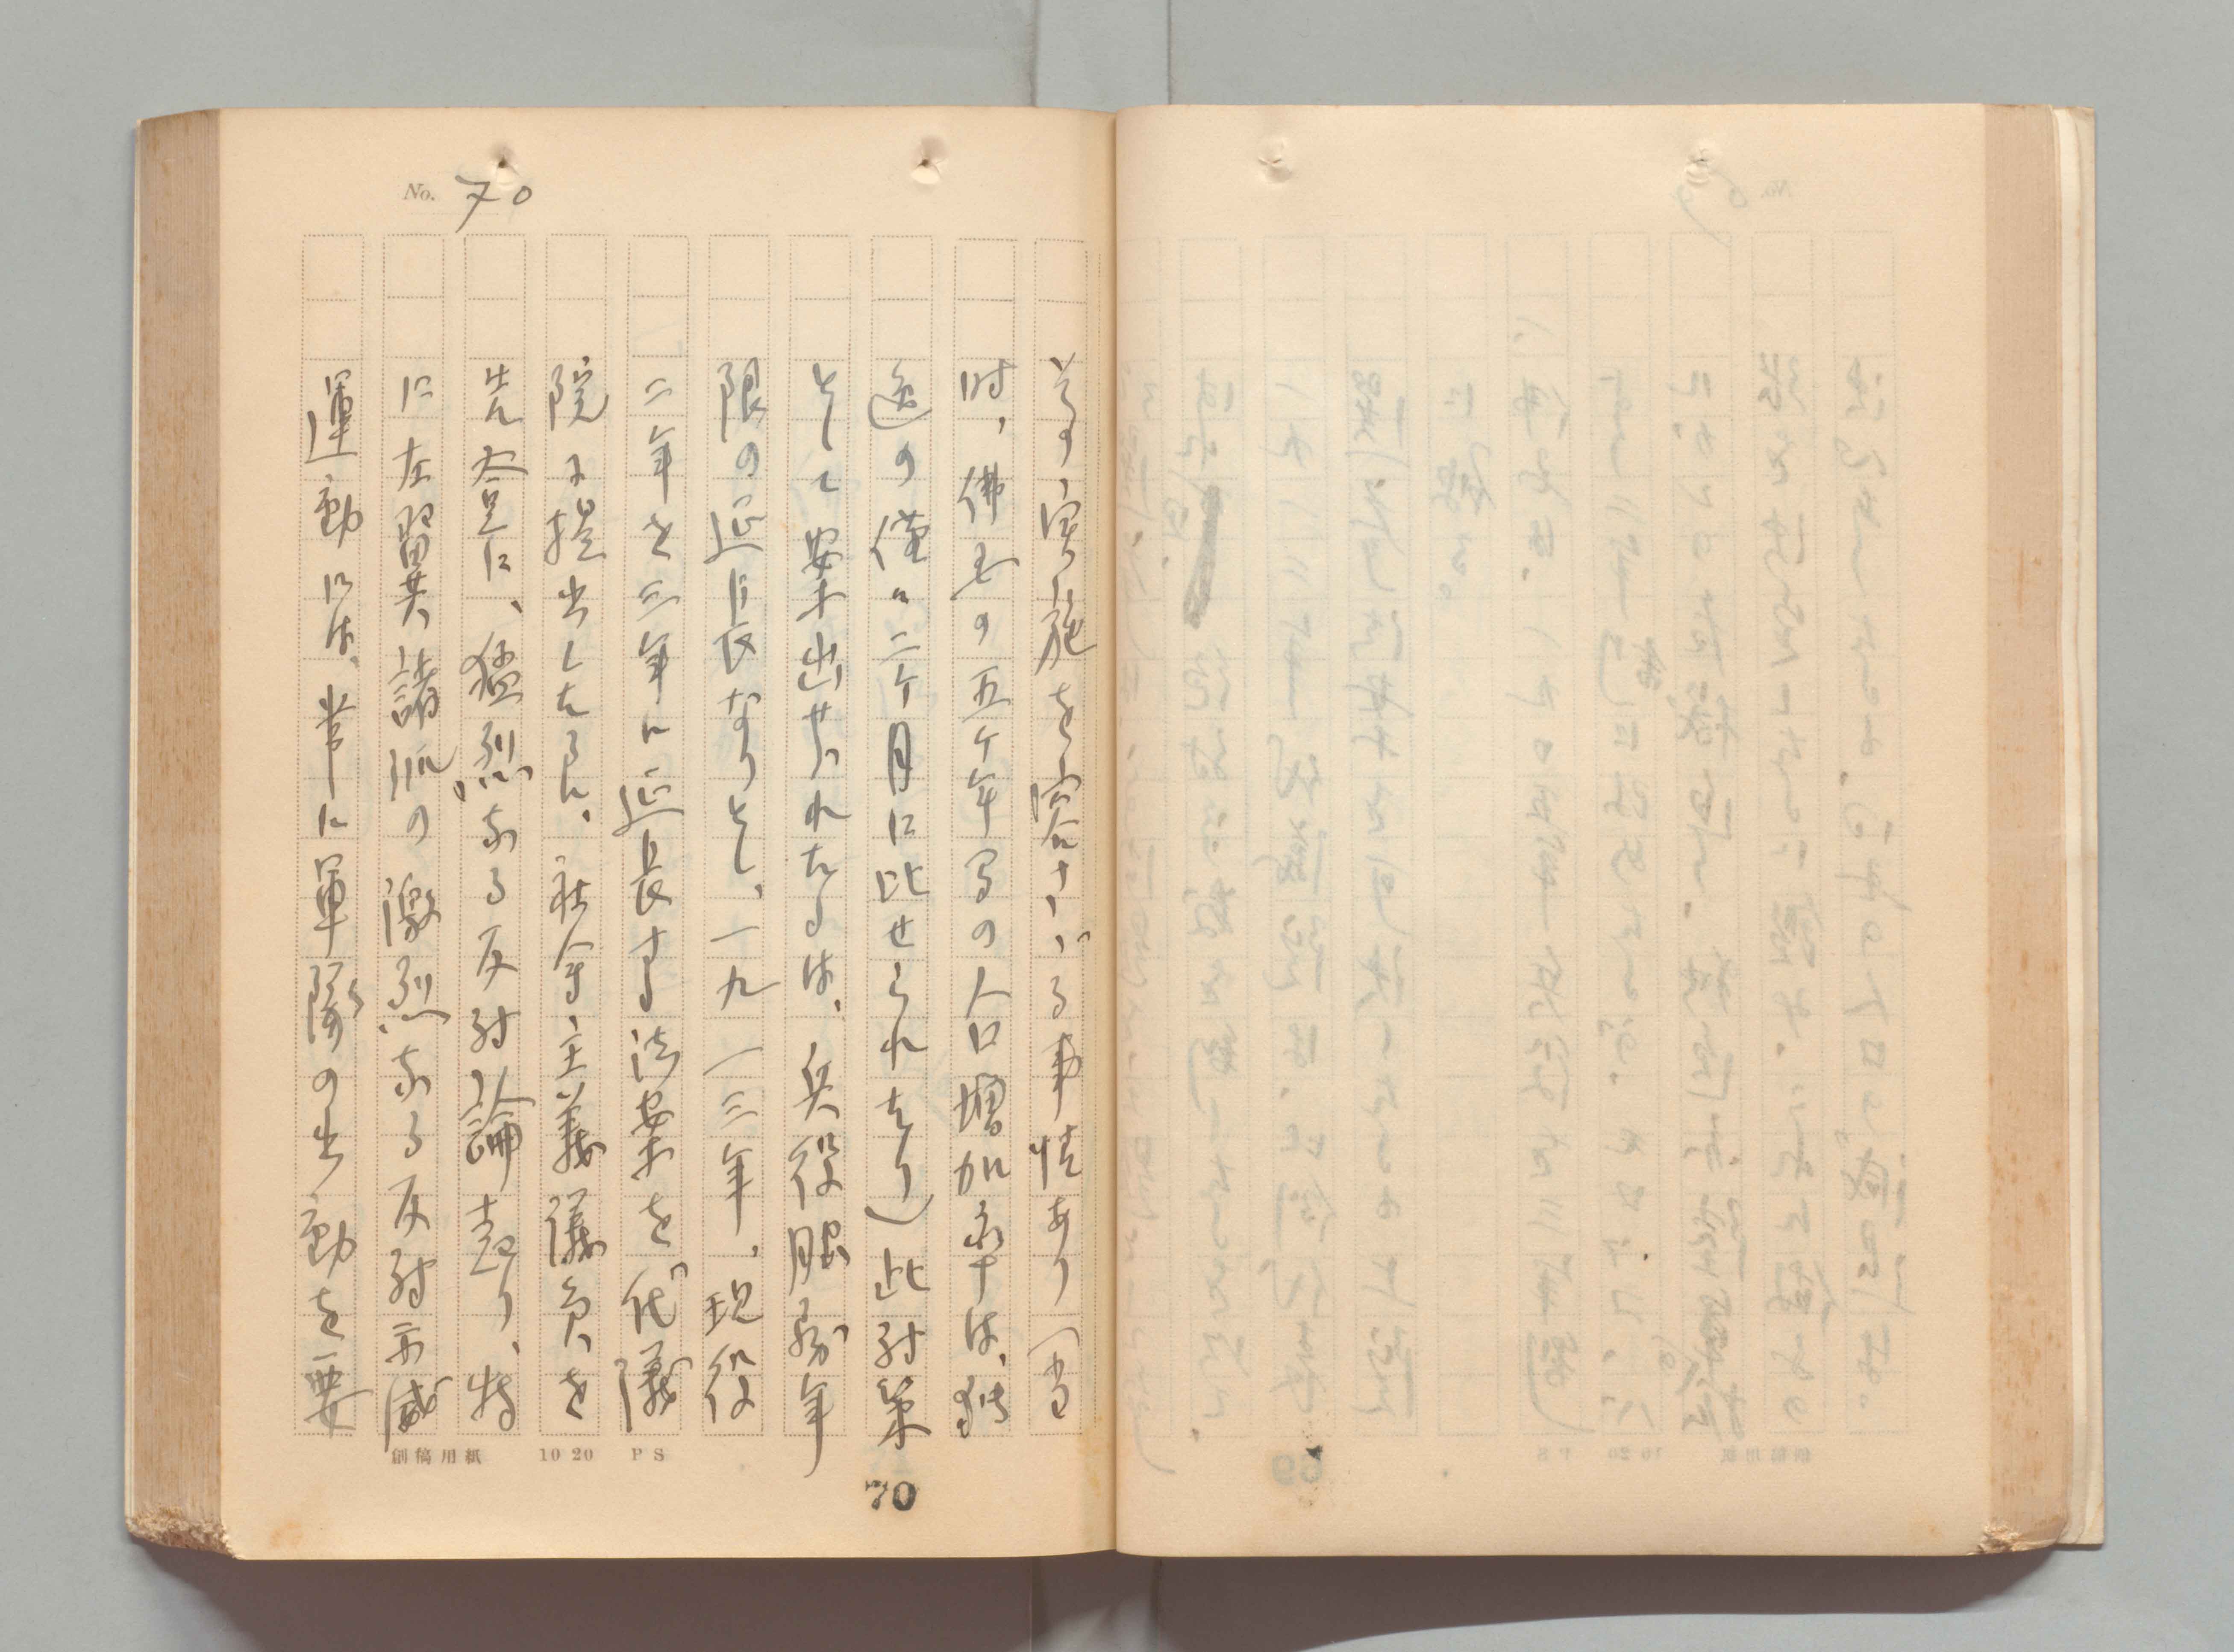 No. 70
等の実施を容さゞる事情あり（当
時、佛国の五ケ年間の人口増加率は、独
逸の僅に二ケ月に比せられたり）此対策
として案出せられたるは、兵役服務年
限の延長なりとし、一九一三年、現役
二年を三年に延長する法案を代議
院に提出したるに、社会主義議員を
先登に、猛烈なる反対論起り、特
に左翼諸派の激烈なる反対示威
運動には、常に軍隊の出動を要
創稿用紙 10 20 PS
70